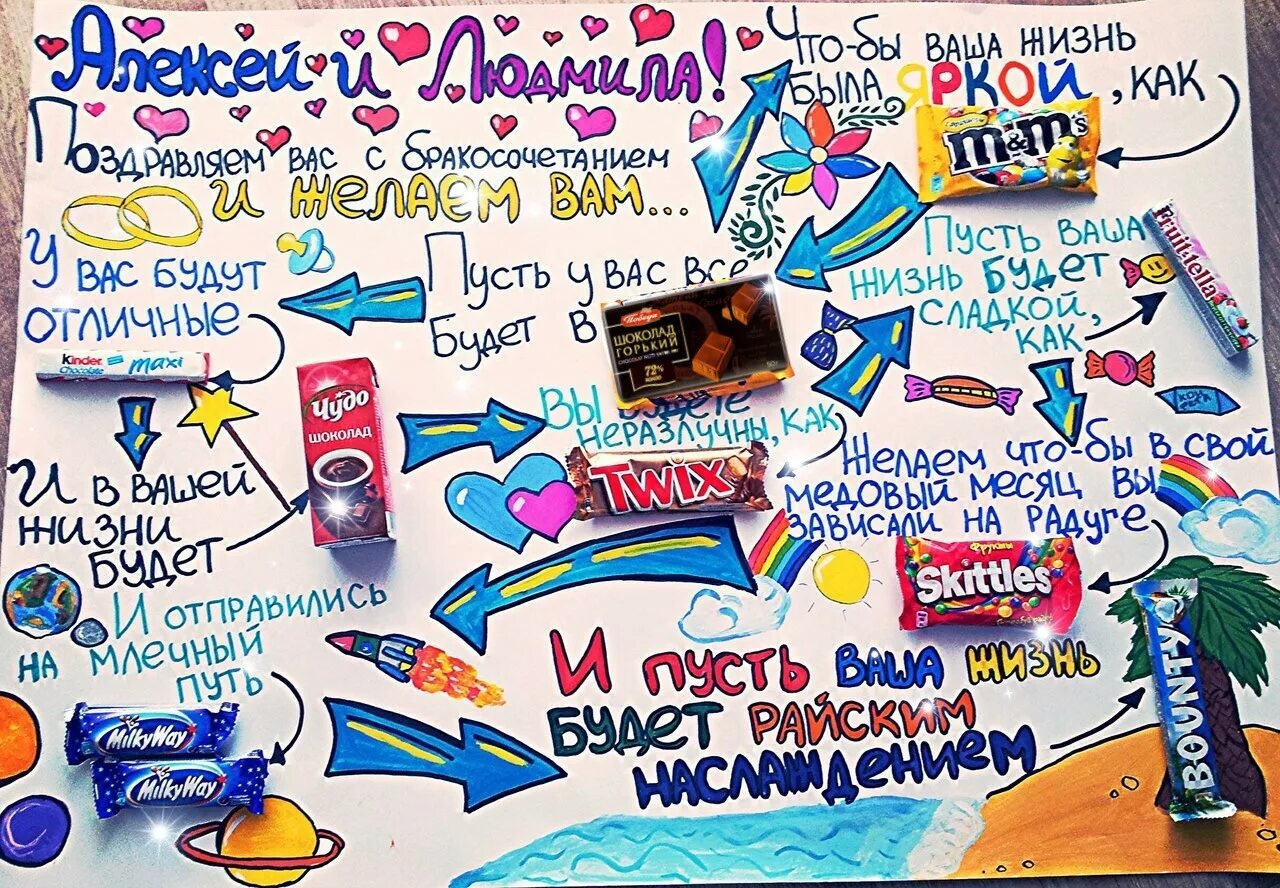 Алексей и Людмила!
Поздравляем вас с бракосочетанием
и желаем вам...
Что-бы ваша жизнь
была яркой, как
m&m's
Пусть у вас все
будет в
Победа
ШОКОЛАД
ГОРЬКИЙ
72%
У вас будут
отличные
kinder maxi
Chocolate
И в вашей
жизни
будет
Чудо
ШОКОЛАД
Вы будете
неразлучны, как
TWIX
Пусть ваша
жизнь будет
сладкой,
как
Fruittella
Желаем что-бы в свой
медовый месяц вы
зависали на радуге
Фрукты
Skittles
И отправились
на млечный
путь
MilkyWay
MilkyWay
И пусть ваша жизнь
будет райским
наслаждением
BOUNTY